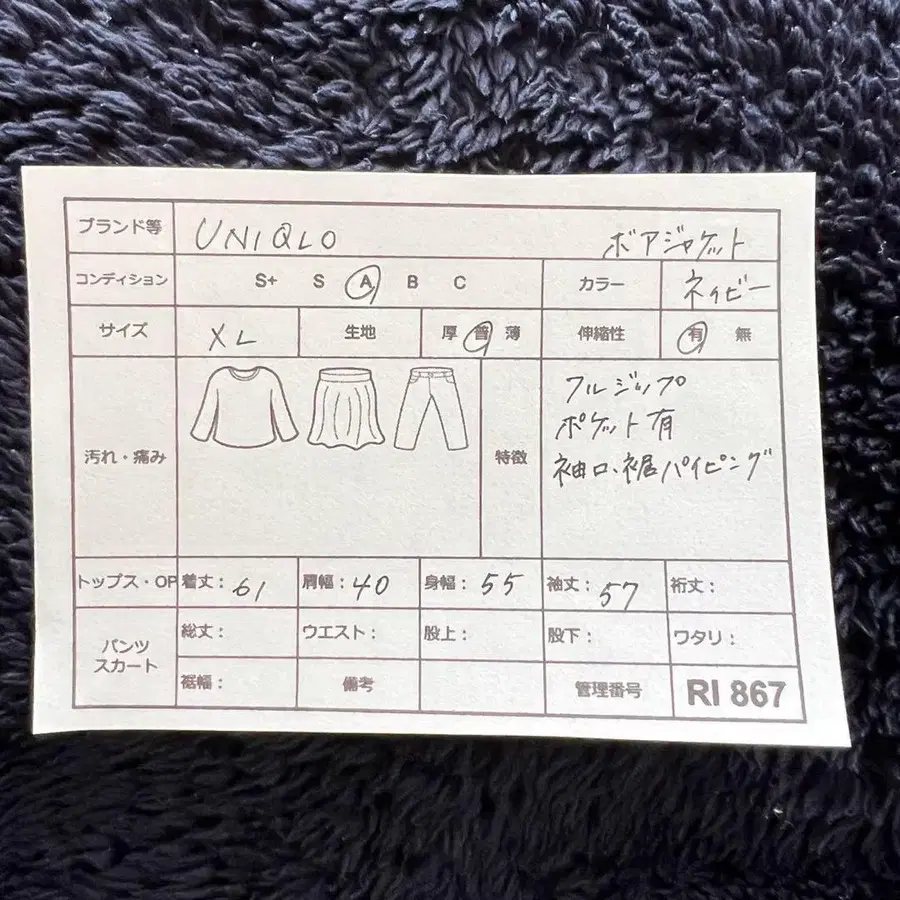 ブランド等 UNIQLO ボアジャケット
コンディション S+ S A B C カラー ネイビー
サイズ XL 生地 厚 普 薄 伸縮性 有 無
汚れ・痛み 特徴
フルジップ
ポケット有
袖口、裾パイピング
トップス・OP 着丈：61 肩幅：40 身幅：55 袖丈：57 裄丈：
パンツ
スカート
総丈： ウエスト： 股上： 股下： ワタリ：
裾幅： 備考 管理番号 RI 867